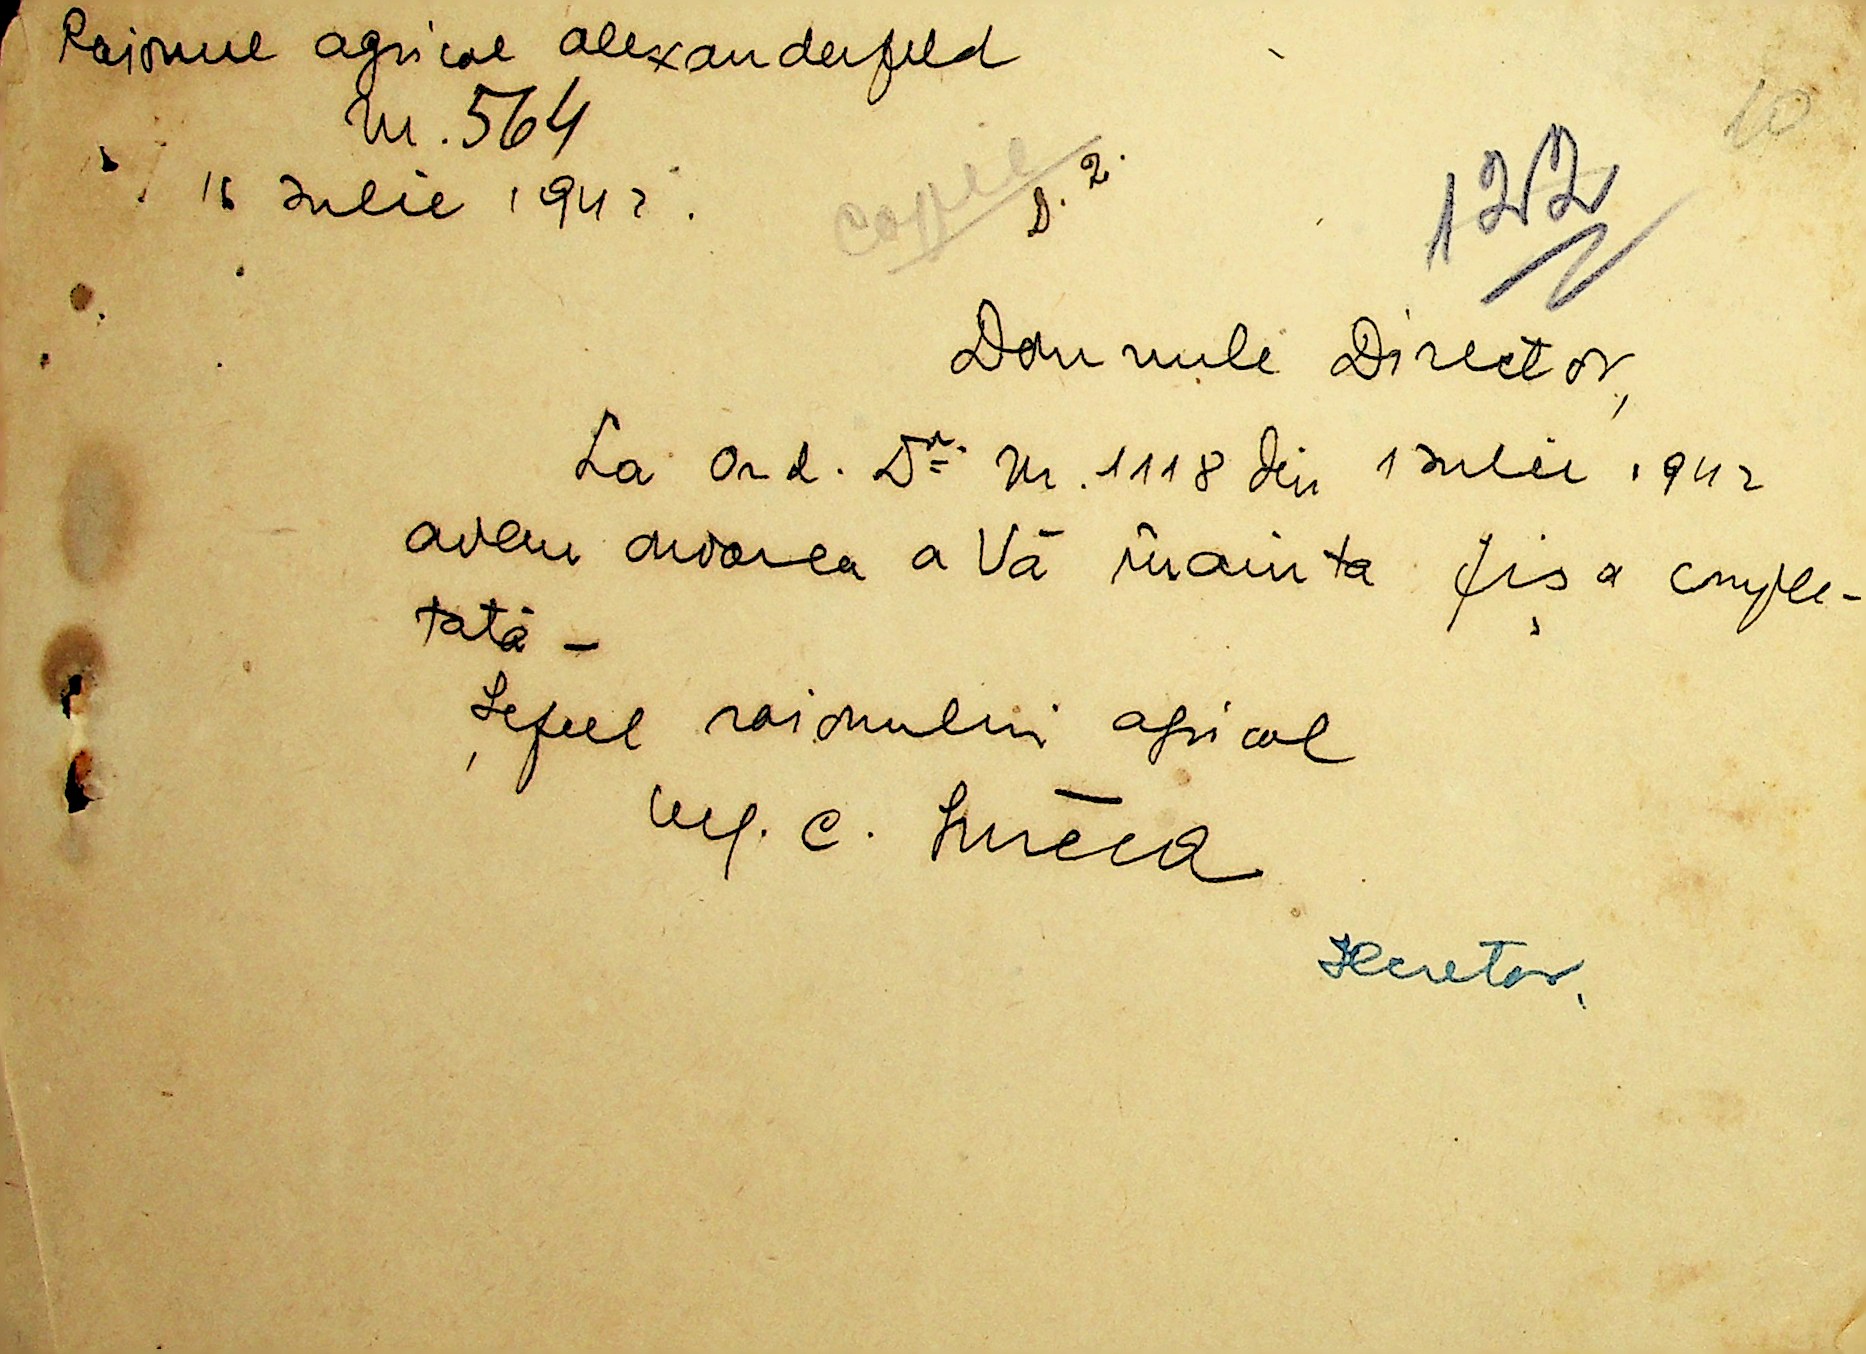 Raionul agricol Alexanderfeld
Nr. 564
16 Iulie 1942.
copie
D. 2.
122
10
Domnule Director,
La Ord. Dv. Nr. 1118 din 1 Iulie 1942
avem onoarea a Vă înainta fișa comple-
tată –
Șeful raionului agricol
C.
Secretar,